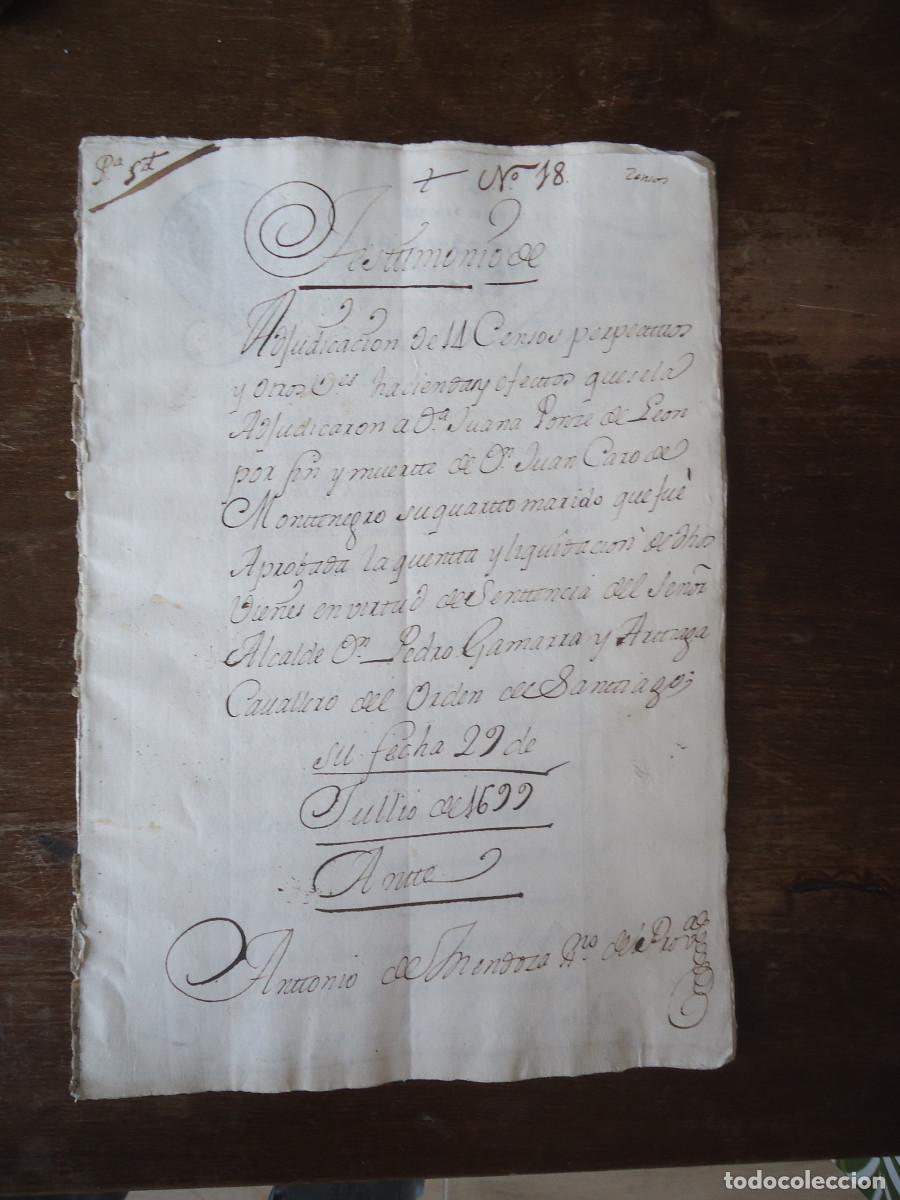 Pª 5ª
+ Nº 18.
Zensos
Testtimonio de
Adjudicacion de 11 Censos perpettuos
y otros Vˢ hacienda y efectos que se la
Adjudicaron a Dª Juana Ponze de Leon
por fin y muertte de Dⁿ Juan Caro de
Monttenegro su quartto marido que fuè
Aprobada la quentta y liquidacion de dhos
Vienes en virtud de Senttencia del Señor
Alcalde Dⁿ Pedro Gamarra y
Cavallero del Orden de Santtiago;
su fecha 29 de
Jullio de 1699
Antte
Anttonio de Mendoza de Prov
todocoleccion